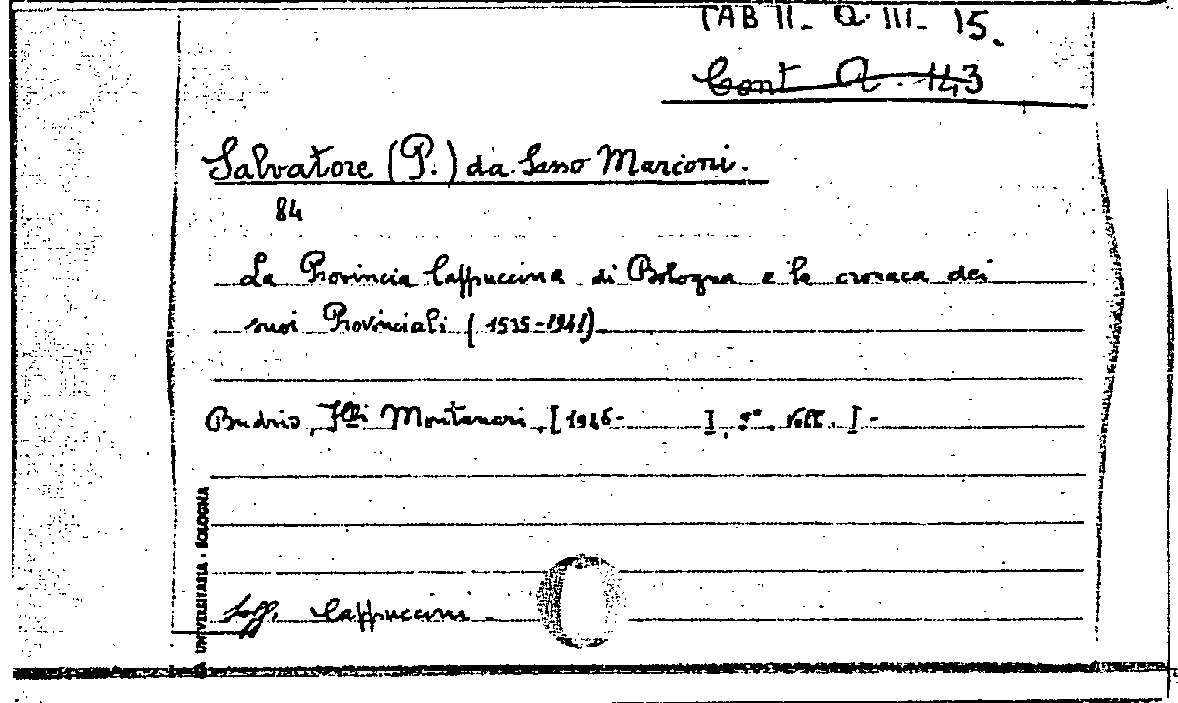 TAB II. Q. III. 15.
Cont Q. 143
Salvatore (P.) da Sasso Marconi.
84
La Provincia Cappuccina di Bologna e la cronaca dei
suoi Provinciali (1535-1941)
Budrio, F.lli Montanari, [1946- ], 8°. Voll. I -
Sogg. Cappuccini
UNIVERSITARIA - BOLOGNA